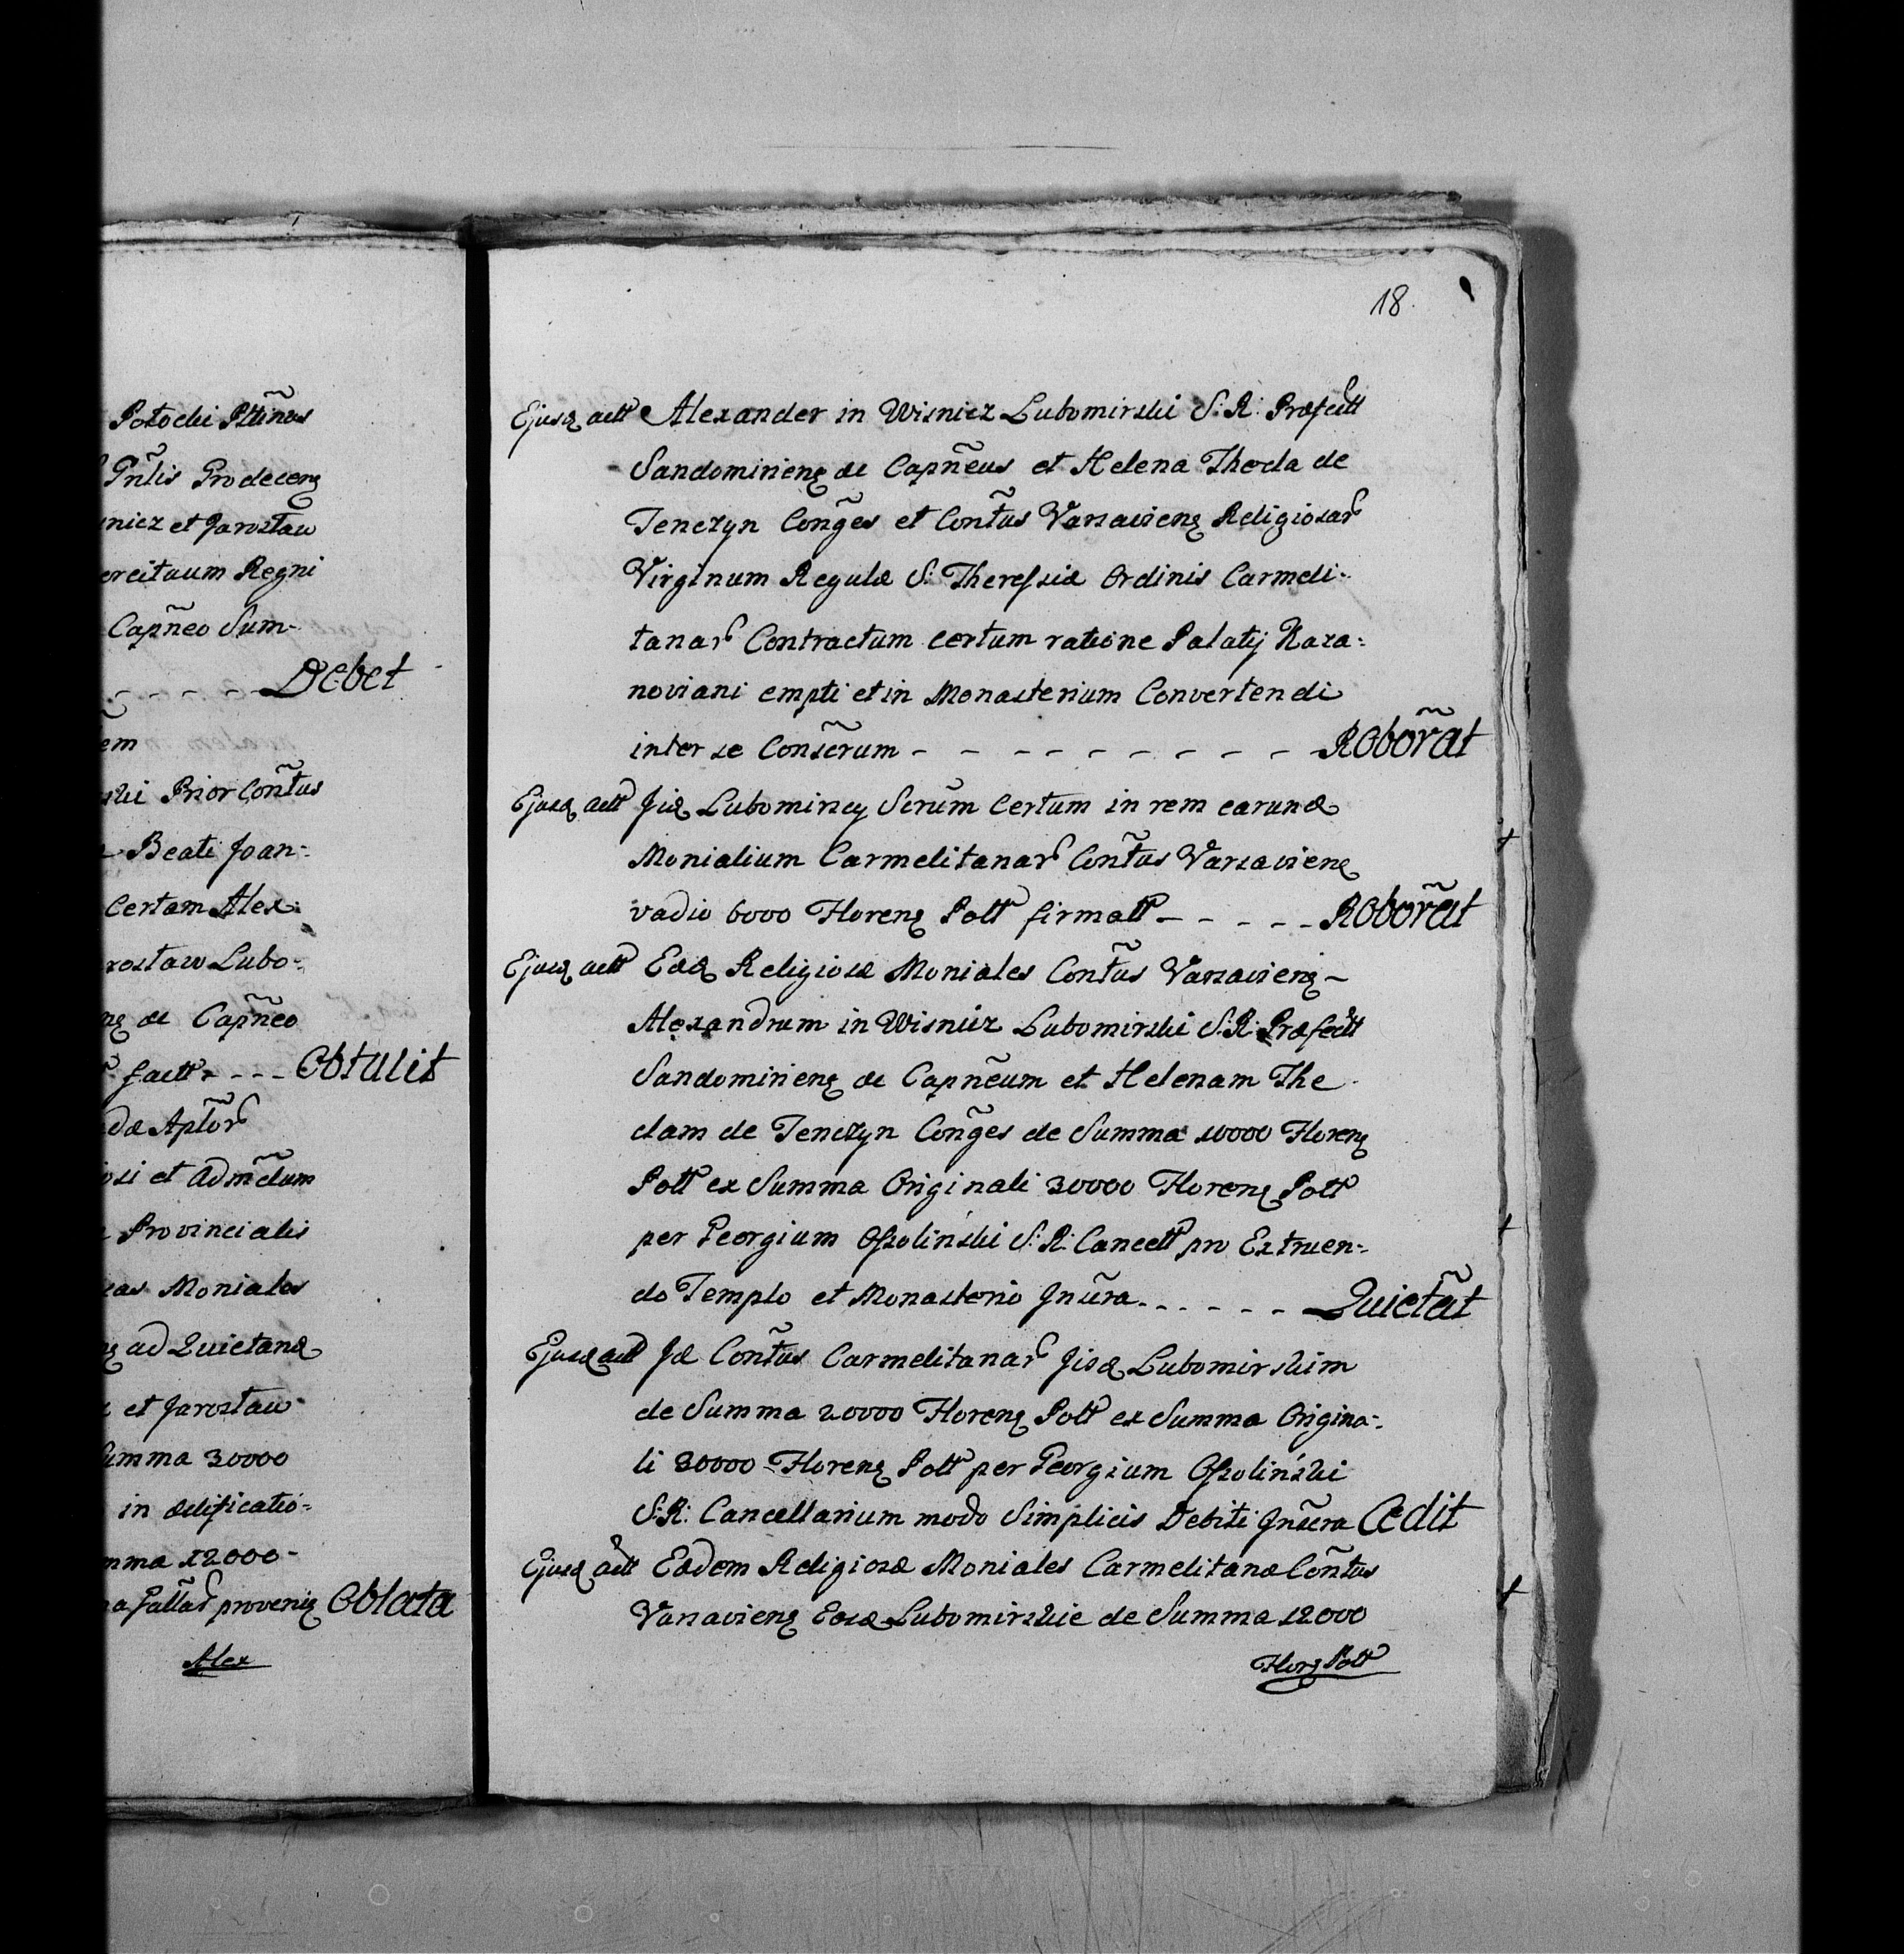 Potocki Pttinus
Pnlis Prodecenq
niez et Jarosław
ercituum Regni
Capneo Sum-
Debet
em
ski Prior Contus
Beati Joan:
Certam Alex:
rosław Lubo-
de Capneo
factt - - - Obtulit
Aplor
osi et Admodum
Provincialis
eas Moniales
ad Quietand
et Jarosław
umma 30000
in ædificatio-
mma 12000-
provenig Oblata
Alex
18.
Ejusq actt Alexander in Wisnicz Lubomirski S: R: Præfectt
Sandomirienq ac Capneus et Helena Thecla de
Tenczyn Conges et Contus Varsavienq Religiosar
Virginum Regulæ S: Theressiæ Ordinis Carmeli-
tanar Contractum certum ratione Palatij Kaza:
noviani empti et in Monasterium Convertendi
inter se Conscrum - - - - - - - - Roborat
Ejusq actt Jidq Lubomirscy Scrum Certum in rem earund
Monialium Carmelitanar Contus Varsavienq
vadio 6000 Florenq Poll firmatt - - - - Roborat
Ejusq actt Eædq Religiosæ Moniales Contus Varsavienq-
Alexandrum in Wisnicz Lubomirski S: R: Præfectt
Sandomirienq ac Capneum et Helenam The
clam de Tenczyn Conges de Summa 10000 Florenq
Poll ex Summa Originali 30000 Florenq Poll
per Georgium Ossolinski S: R: Cancell pro Extruen-
do Templo et Monasterio Inscra - - - - - Quietat
Ejusq actt Jd Contus Carmelitanar Jisd Lubomirskim
de Summa 20000 Florenq Poll ex Summa Origina-
li 30000 Florenq Poll per Georgium Ossolinski
S: R: Cancellarium modo Simplicis Debiti Inscra Cedit
Ejusq actt Eædem Religiosæ Moniales Carmelitanæ Contus
Varsavienq Eosd Lubomirskie de Summa 12000
Florq Poll